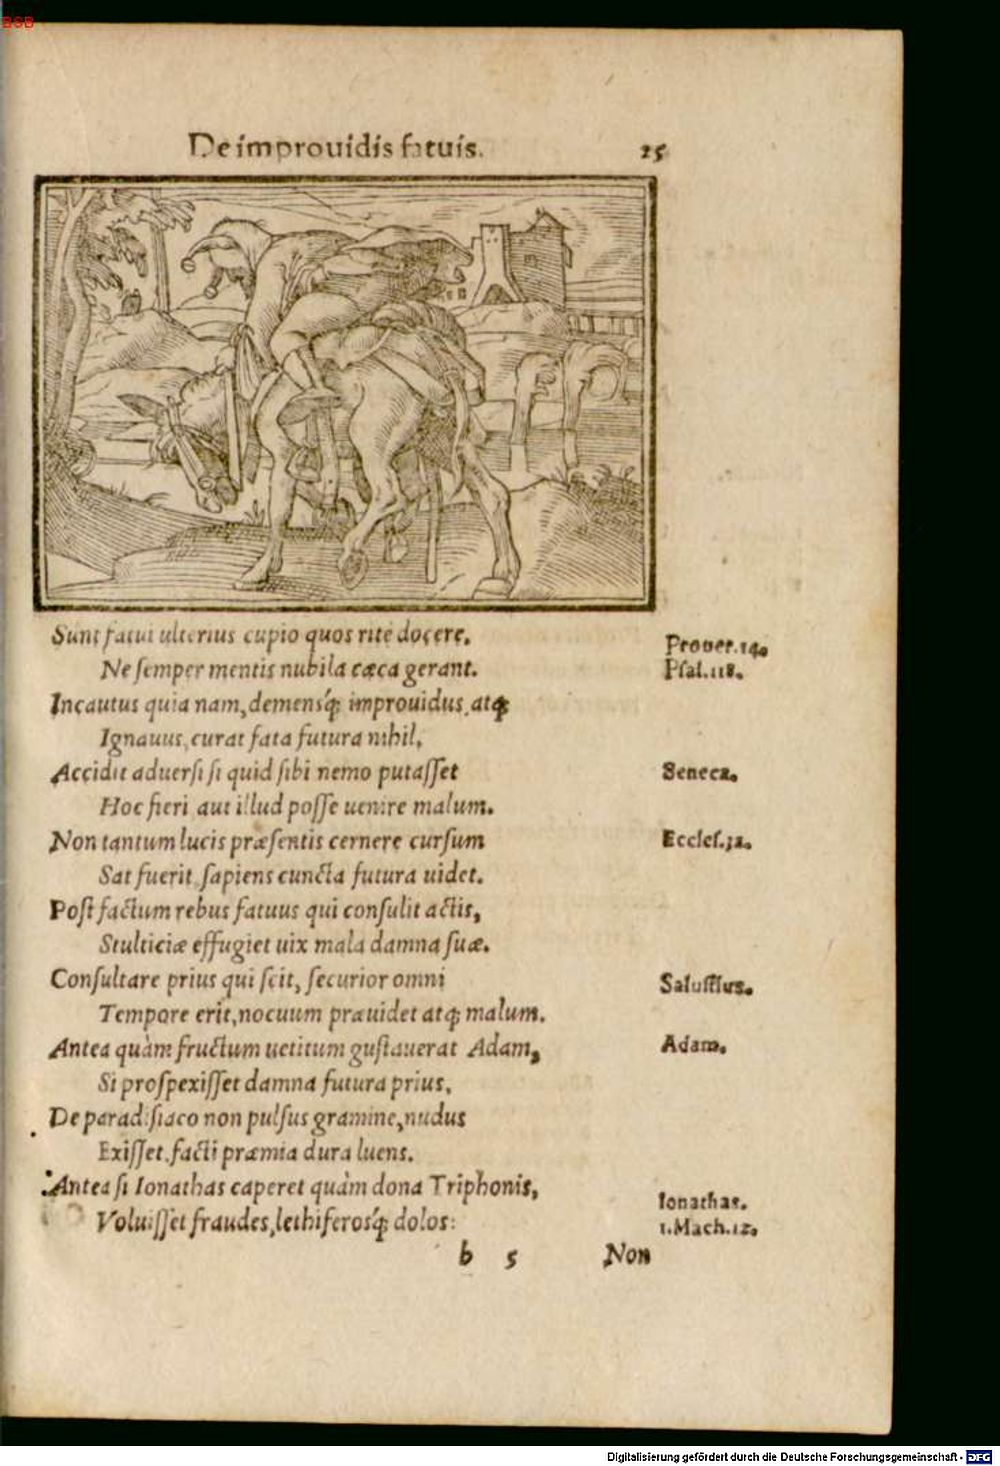 BSB
De improuidis fatuis. 25
Sunt fatui ulterius cupio quos rite docere,
Prouer.14.
Ne semper mentis nubila cæca gerant.
Psal.118.
Incautus quia nam, demensq́; improuidus, atq;
Ignauus, curat fata futura nihil,
Accidit aduersi si quid sibi nemo putasset
Seneca.
Hoc fieri aut illud posse uenire malum.
Non tantum lucis præsentis cernere cursum
Eccles.32.
Sat fuerit, sapiens cuncta futura uidet.
Post factum rebus fatuus qui consulit actis,
Stulticiæ effugiet uix mala damna suæ.
Consultare prius qui scit, securior omni
Salustius.
Tempore erit, nocuum præuidet atq; malum.
Antea quàm fructum uetitum gustauerat Adam,
Adam.
Si prospexisset damna futura prius,
De paradisiaco non pulsus gramine, nudus
Exisset, facti præmia dura luens.
Antea si Ionathas caperet quàm dona Triphonis,
Ionathas.
Voluisset fraudes, lethiferosq́; dolos:
1.Mach.12.
b 5 Non
Digitalisierung gefördert durch die Deutsche Forschungsgemeinschaft - DFG